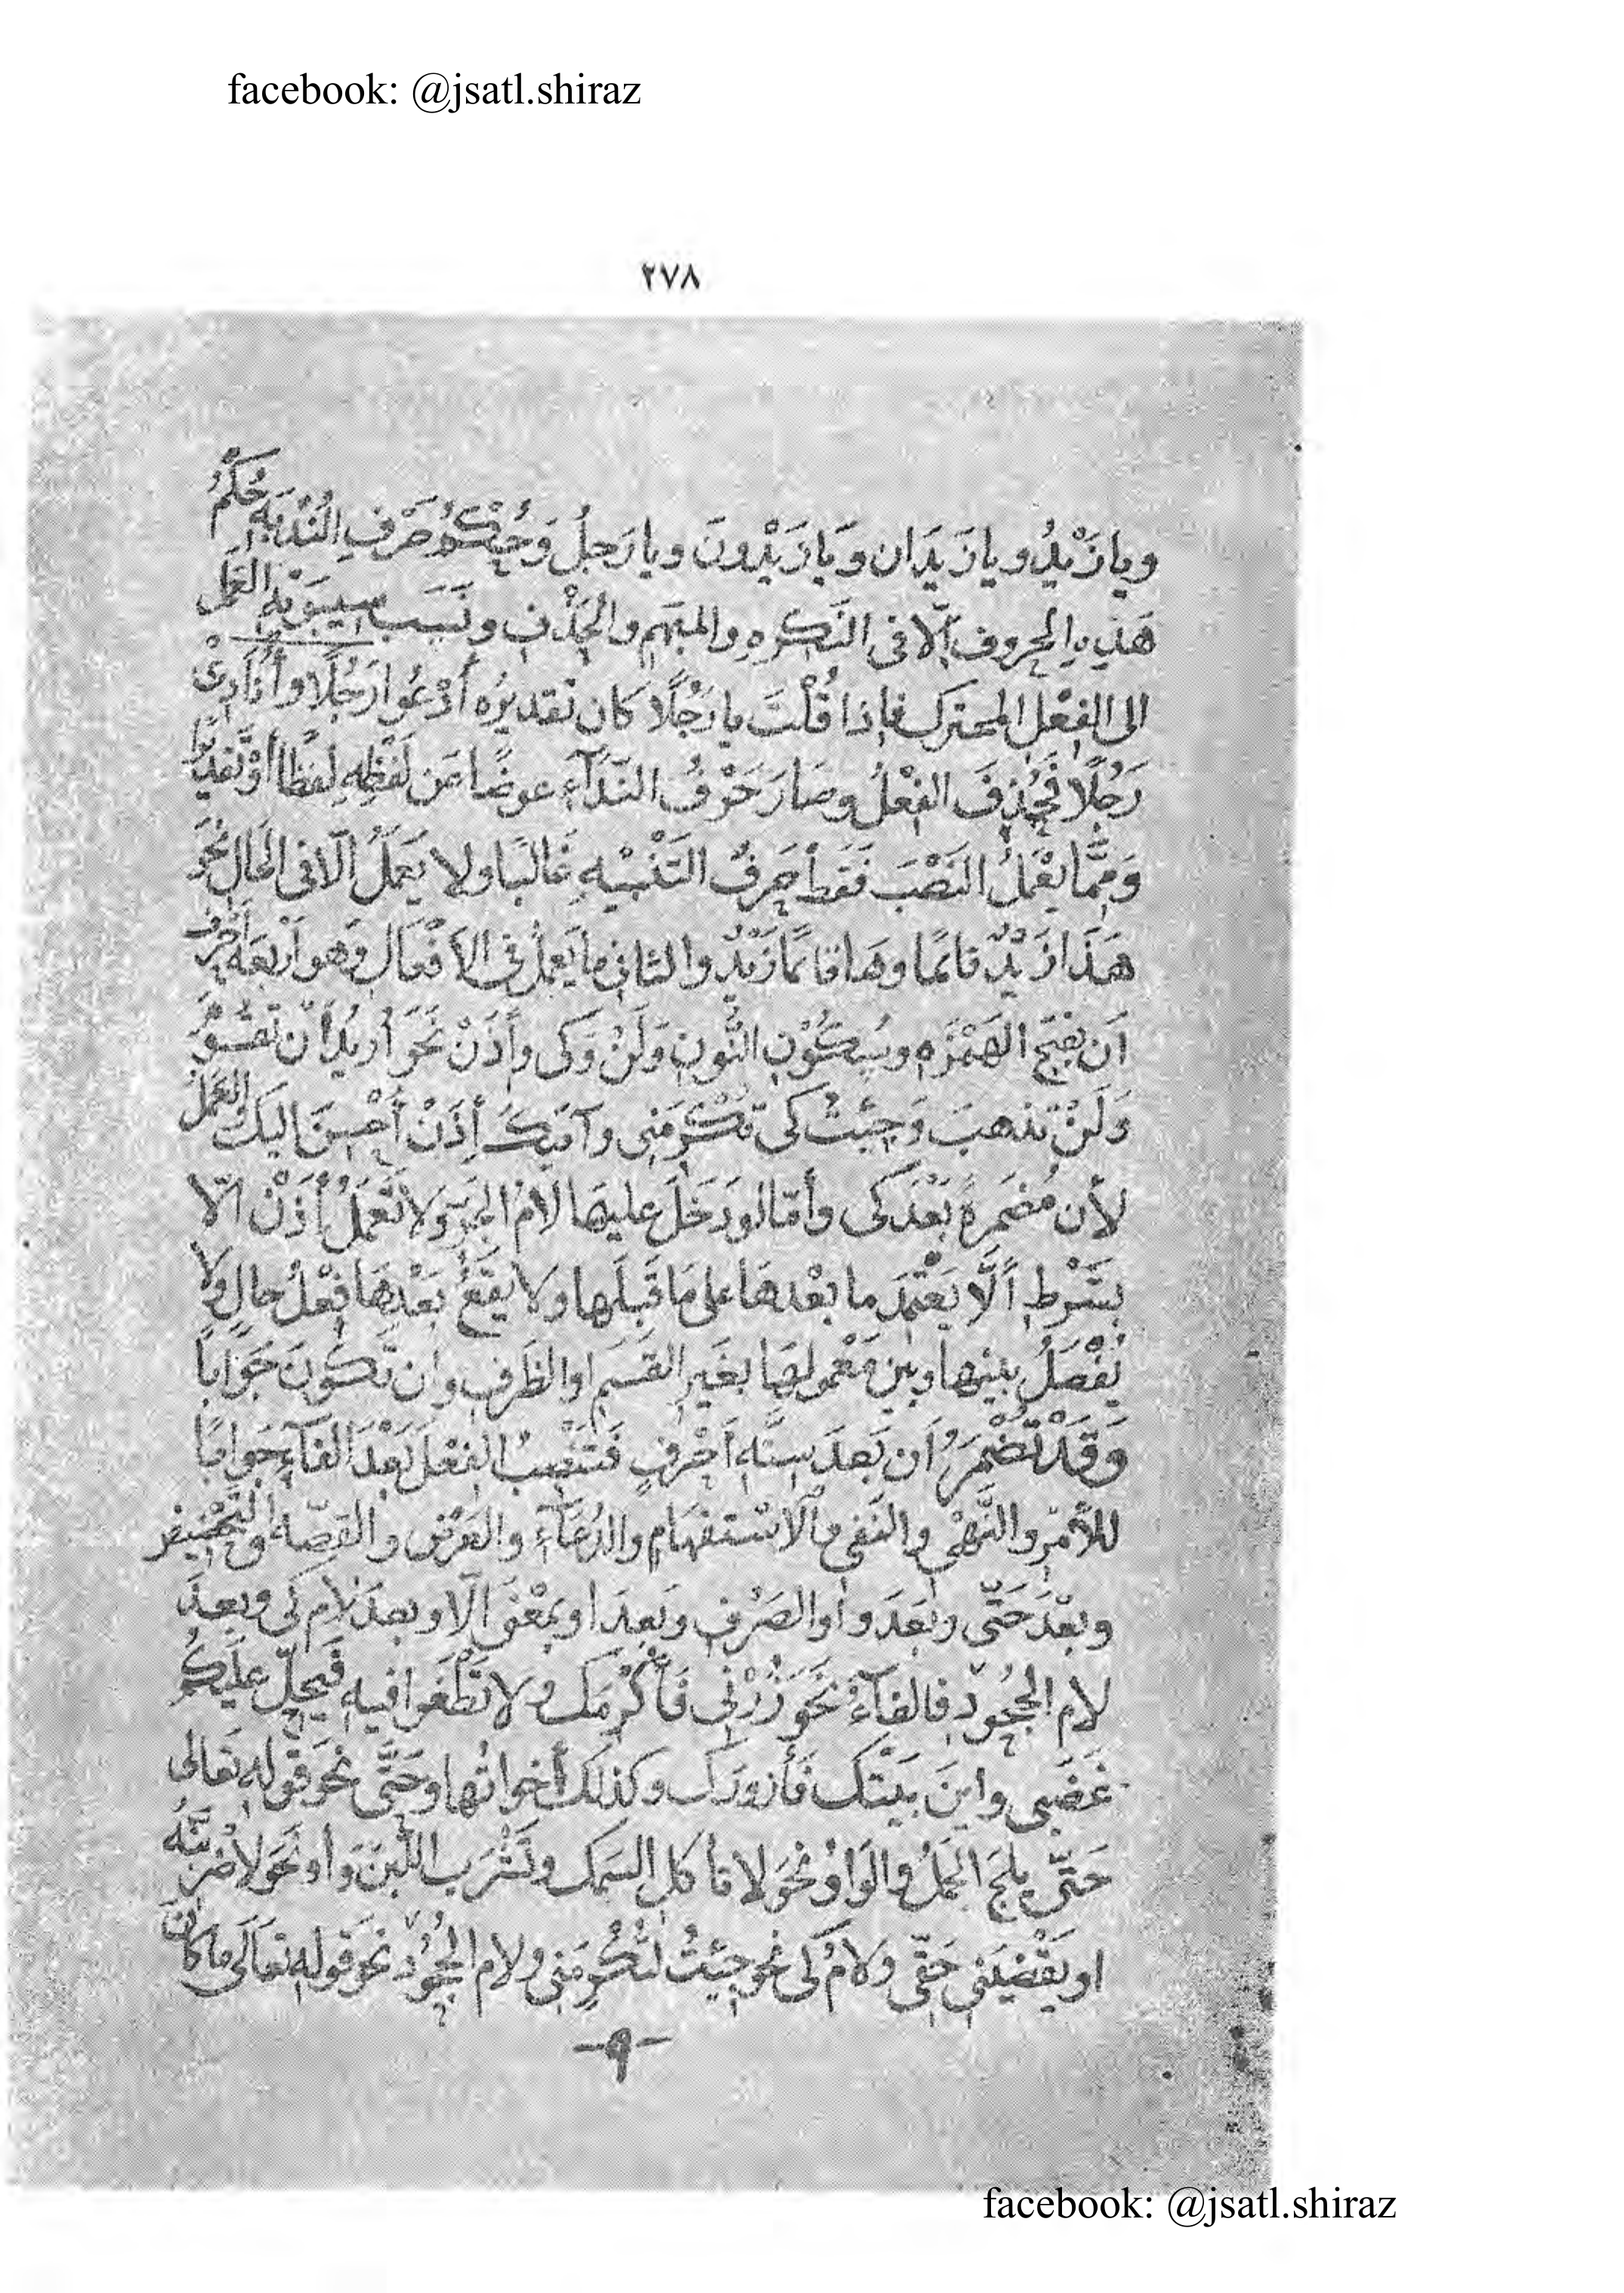 facebook: @jsatl.shiraz
٢٧٨
ويا زَيْدُ ويا زَيدَان وَيَا زَيْدُونَ ويا رَجلُ وَحُكْمُ حَرْفِ النُدْبَةِ حُكْمُ
هَذِهِ الحروف اِلّا فى النَّكرهِ والمبَهم والحَذْفِ ونَسَبَ سيبَوَيْهِ العَمَل
الى الفِعْل المحترك فاِذا قُلْتَ يا رَجُلًا كان تقديرُه أدْعُوا رَجُلًا وأُنَادِىْ
رَجُلًا فَحُذِفَ الفِعْلُ وصَارَ حَرْفُ النّدَآءِ عوضًا عَن لَفْظِهِ لفظًا أوْ تَقْديرًا
وَمِمَّا يعْمَلُ النَصْبَ فَقَط حَرفُ التَنْبيْهِ غَالبًا ولا يَعمَلُ اِلّا فى الحَالِ نَحْوَ
هَذَا زَيْدٌ قائمًا وهَا قائمًا زَيْدٌ والثانى ما يَعملُ فى الأفْعَالِ وَهو أربَعَة أحْرُف
اَن بفتحِ الهَمْزَهِ وسُكُوْن النُّونِ وَلَنْ وَكى وأِذَنْ نَحَوَ أُريدُ أنْ تَقُومَ
وَلَنْ تذهبَ وَجِئتُ كَى تُكْرِمَنى وآتيكَ أِذَنْ أُحْسِنَ اليكَ والعَمَلُ
لأن مُضمَرةً بَعْدَ كى وأمّا لو دَخَلَ عليهَا لَامُ الجَرِّ وَلا تَعْمَلُ أِذَنْ اِلّا
بشَرْطِ ألَّا يَعْتمِدَ ما بعْدهَا على مَا قَبلَها ولا يقَعُ بَعْدهَا فِعْلُ حالٍ ولا
يُفْصَلُ بينها وبين مَعْمولهَا بغَيرِ القَسَمِ او الظَرفِ وان تكُونَ جَوَابًا
وَقَدْ تُضْمَرُ اَن بَعدَ سِتَّةِ اَحْرفٍ فَتَنْصِبُ الفِعْلَ بَعْدَ الفآءِ جَوابًا
للأمْرِ والنَّهْىِ والنَفى والاسْتفهَامِ والدُعَآءِ والعَرْضِ والقِصّة والتَحْضيض
وبعْدَ حَتَّى وبَعَدَ واوِ الصَرْفِ وَبَعدَ او بمعْنَى اِلّا وبعدَ لامِ كَى وبعدَ
لام الجُحُوْدِ فالفآءُ نَحَوَ زُرْنِى فَأُكْرِمَك ولا تَطْغَوا فيهِ فَيَحِلّ عَليَكُمْ
غَضَبى واينَ بيَتْكَ فَأزورَكَ وكذلك أخواتُها وحَتَّى نحو قوله تعَالى
حَتّى يلجَ الجَمَلُ والوَاوُ نحوَ لا تأكل السَمك وتَشْرَبَ اللّبَنَ وأوْ نَحْوَ لأضرِبَنَّهُ
او يَقْضِيَنِى حَقّى وَلامُ كَى نحو جِيئتُ لتُكْرِمَنِى ولام الجُحُوْدِ نحو قوله تعَالَى ما كانَ
-٩-
facebook: @jsatl.shiraz